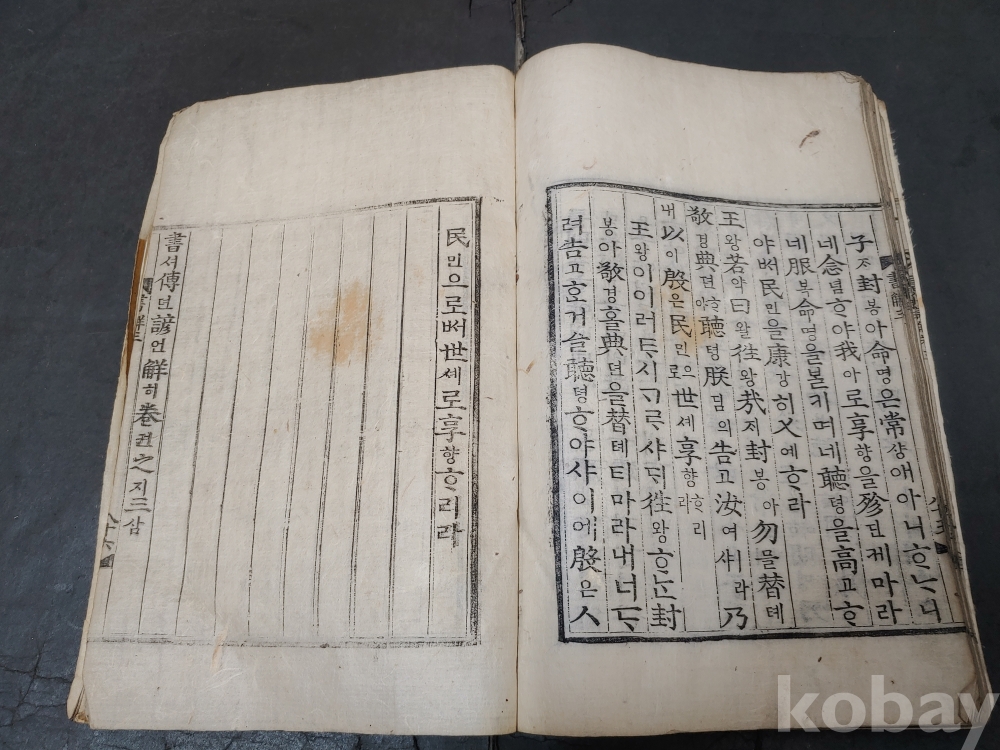 子ᄌ封봉아命명은常샹애아니ᄒᆞᄂᆞ니
네念념ᄒᆞ야我아로享향을殄딘케마라
네服복命명을볼기며네聽텽을高고ᄒᆞ
야ᄡᅥ民민을康강히乂예ᄒᆞ라
王왕若약曰왈往왕哉ᄌᆡ封봉아勿믈替톄
敬경典뎐ᄒᆞ야聽텽朕딤의告고汝여샤라乃
내以이殷은民민으로世셰享향ᄒᆞ리라
王왕이이러ᄐᆞ시ᄀᆞᄅᆞ샤ᄃᆡ往왕ᄒᆞᄂᆞᆫ封
봉아敬경홀典뎐을替톄티마라내너ᄃᆞ
려告고호거슬聽텽ᄒᆞ야샤이에殷은人
民민으로ᄡᅥ世셰로享향ᄒᆞ리라
書셔傳뎐諺언解ᄒᆡ卷권之지三삼
kobay